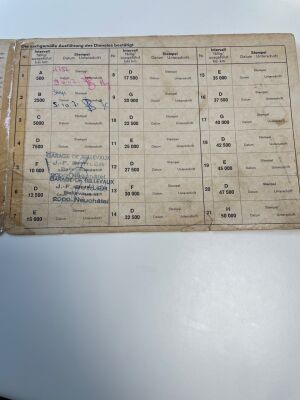 Die sachgemäße Ausführung des Dienstes bestätigt
Nr. Intervall fällig/ausgeführt bei km Stempel Datum Unterschrift
1 A 500 Stempel Datum Unterschrift
2 B 2500 Stempel
3 C 5000 Stempel Datum Unterschrift
4 D 7500 Stempel Datum Unterschrift
5 F 10 000
GARAGE DE BELLEVAUX
J.-F. BUHLER
2000 Neuchâtel
6 D 12 500
GARAGE DE BELLEVAUX
J.-F. BUHLER
Bellevaux 11
2000 Neuchâtel
7 E 15 000
Nr. Intervall fällig/ausgeführt bei km Stempel Datum Unterschrift
8 D 17 500 Stempel Datum Unterschrift
9 G 20 000 Stempel Datum Unterschrift
10 D 22 500 Stempel Datum Unterschrift
11 E 25 000 Stempel Datum Unterschrift
12 D 27 500 Stempel Datum Unterschrift
13 F 30 000 Stempel Datum Unterschrift
14 D 32 500 Stempel Datum Unterschrift
Nr. Intervall fällig/ausgeführt bei km Stempel Datum Unterschrift
15 E 35 000 Stempel Datum Unterschrift
16 D 37 500 Stempel Datum Unterschrift
17 G 40 000 Stempel Datum Unterschrift
18 D 42 500 Stempel Datum Unterschrift
19 E 45 000 Stempel Datum Unterschrift
20 D 47 500 Stempel Datum Unterschrift
21 H 50 000 Stempel Datum Unterschrift